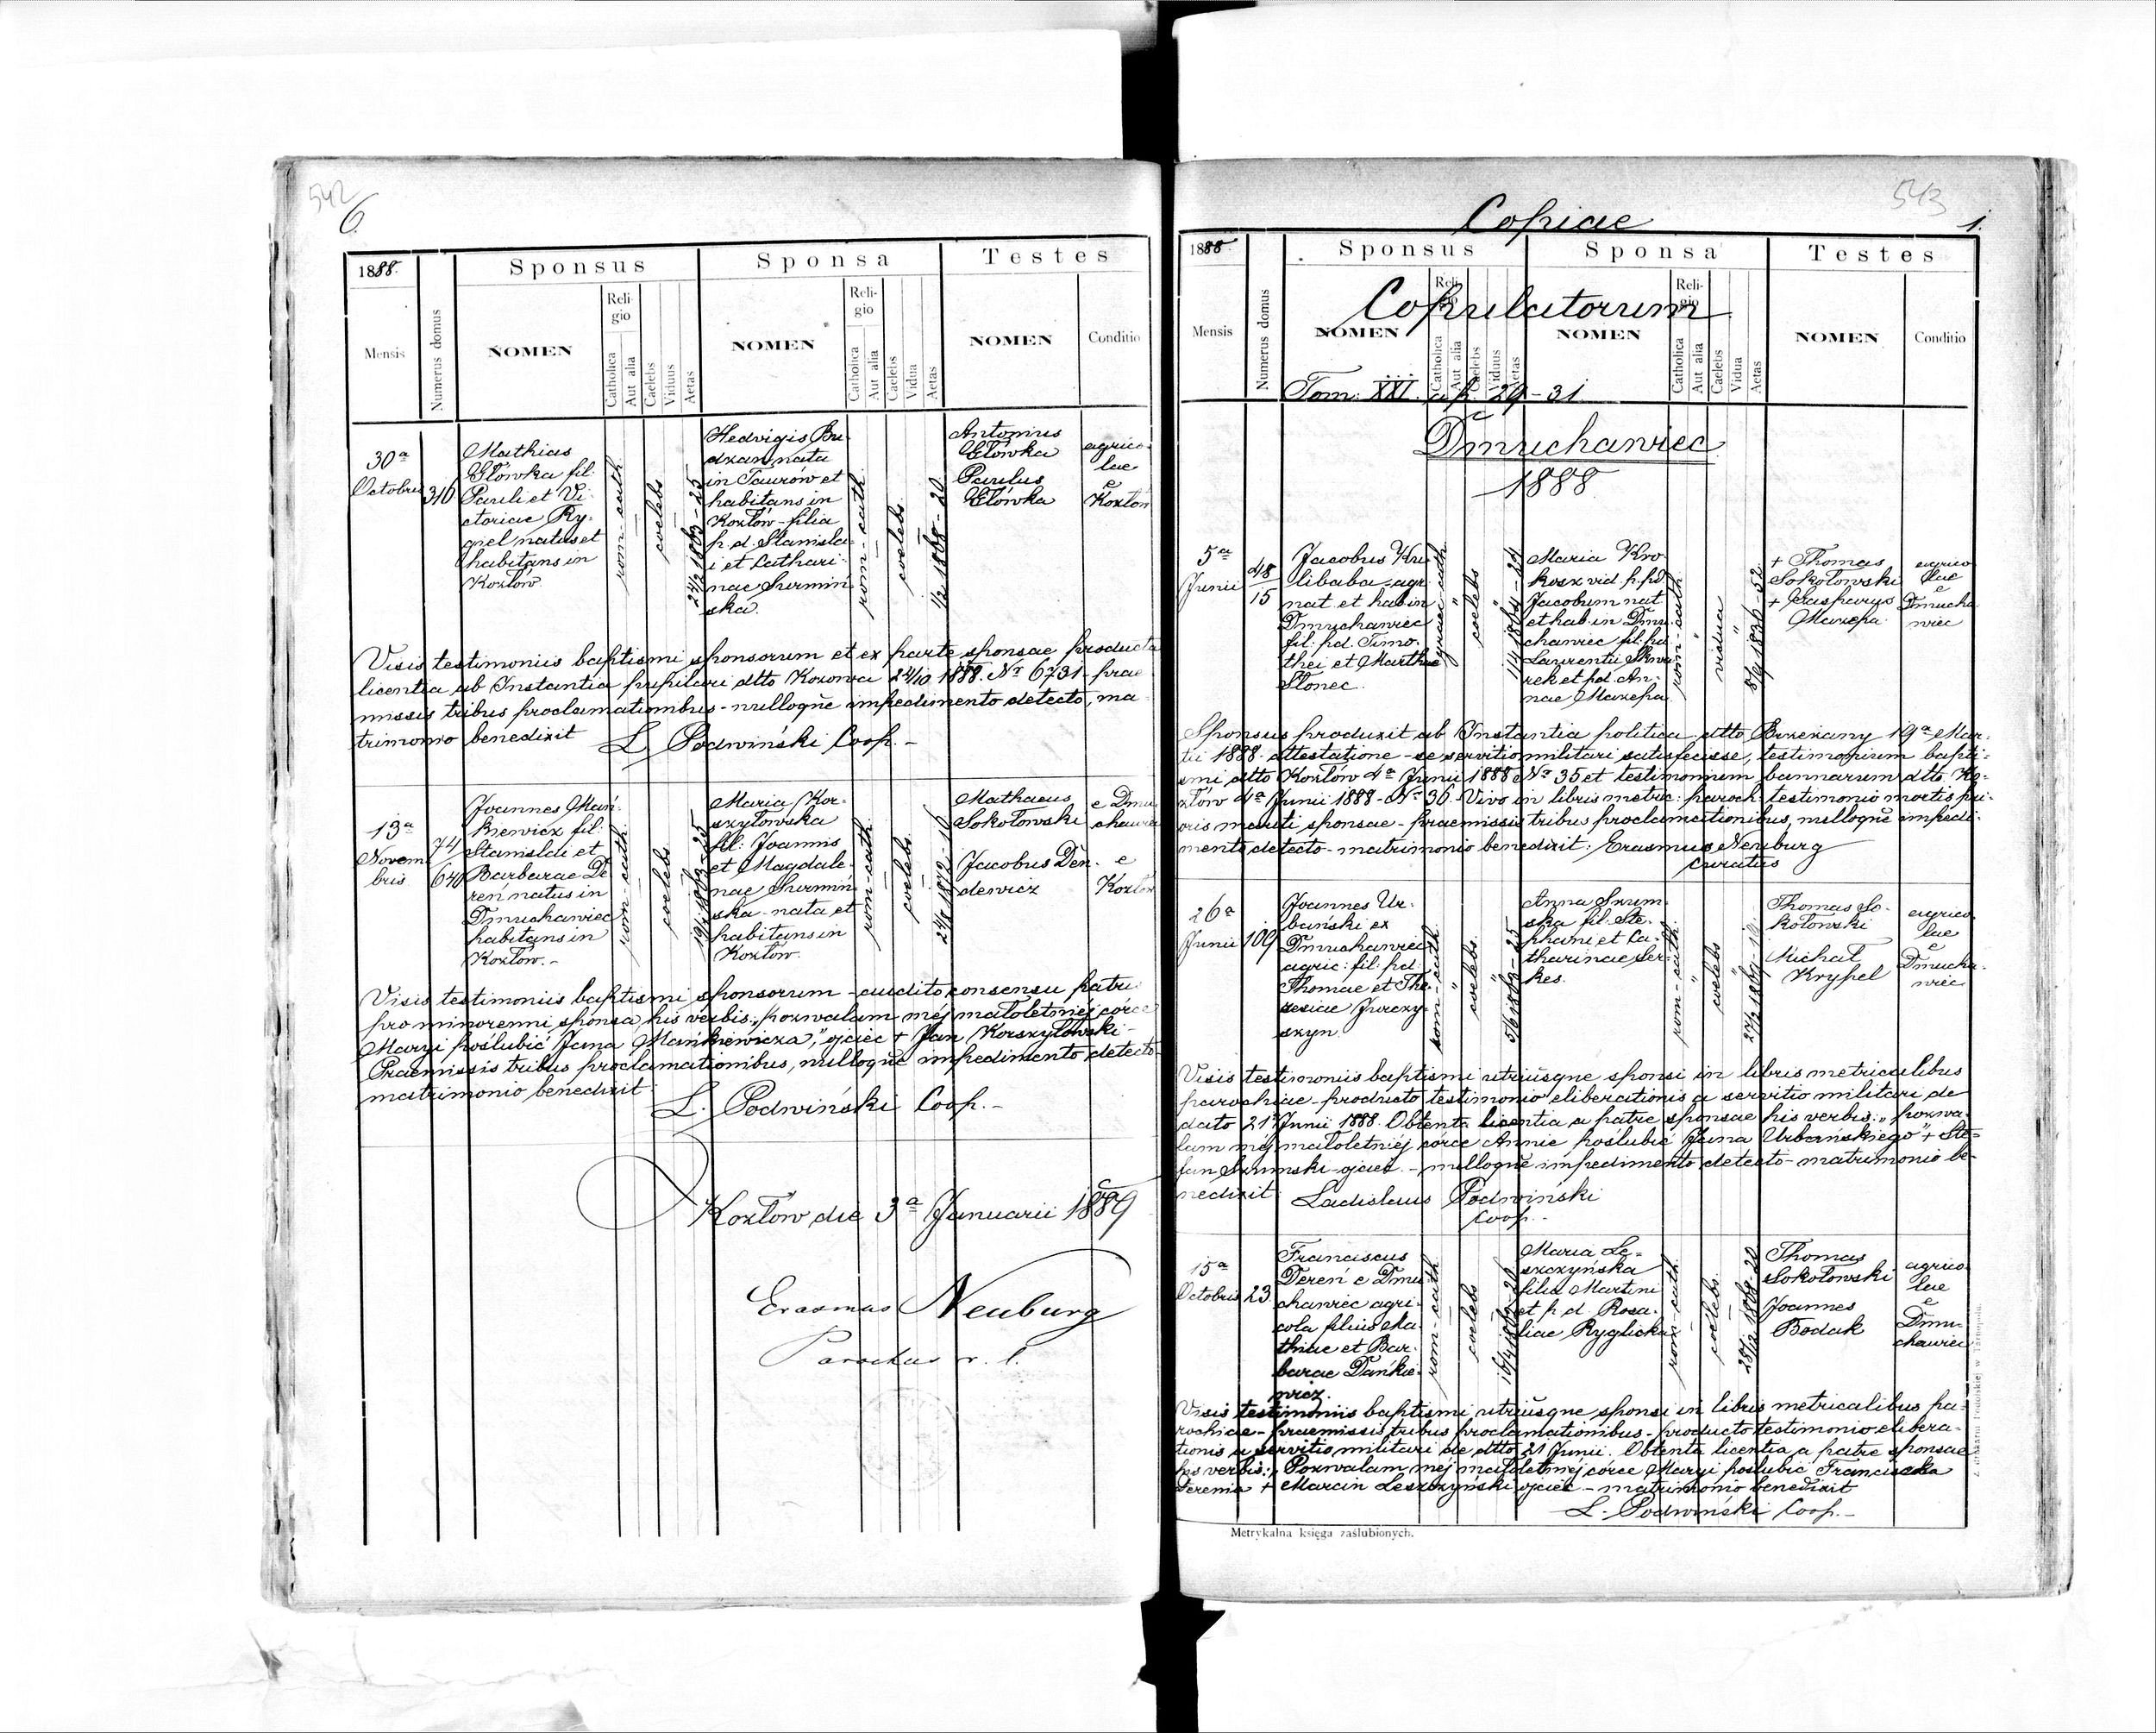 542
6
1888.
Sponsus
Sponsa
Testes
Mensis
Numerus domus
NOMEN
Religio
Catholica
Aut alia
Caelebs
Viduus
Aetas
NOMEN
Religio
Catholica
Aut alia
Caelebs
Vidua
Aetas
NOMEN
Conditio
30ª
Octobris
316
Mathias
Główka fil.
Pauli et Vi-
ctoriae Ry-
giel natus et
habitans in
Kozłów
rom-cath
coelebs
24/2 1863-25
Hedvigis Bu-
dzan nata
in Taurów et
habitans in
Kozłów-filia
p.d. Stanisla-
i et Cathari-
nae Surmin-
ska.
rom-cath
coelebs
1/2 1868-20
Antonius
Główka
Paulus
Główka
agrico-
lae
e
Kozłów
Visis testimoniis baptismi sponsorum et ex parte sponsae producta
licentia ab Instantia pupilari dtto Kozowa 24/10 1888. Nr 6731 prae
missis tribus proclamationibus-nulloque impedimento detecto, ma
trimonio benedixit L. Podwiński Coop.-
13ª
Novem
bris
74/
640
Joannes Mań-
kiewicz fil.
Stanislai et
Barbarae De
reń natus in
Dmuchawiec
habitans in
Kozłow.-
rom-cath
coelebs
Maria Kor-
szyłowska
fil: Joannis
et Magdale-
nae Surmiń-
ska-nata et
habitans in
Kozłow.
rom-cath
coelebs
24/8 1872-16
Mathaeus
Sokołowski
Jacobus Den-
dewicz
e Dmu
chawiec
e
Kozłow
Visis testimoniis baptismi sponsorum-audito consensu patris
pro minorenni sponsa his verbis: „pozwalam méj małoletniéj córce
Maryi poślubić Jana Mańkiewicza," ojciec + Jan Korszyłowski-
Praemissis tribus proclamationibus, nulloque impedimento detecto
matrimonio benedixit
L. Podwiński Coop.-
Kozłow die 3ª Januarii 1889
Erasmus Neuburg
Parochus r. l.
543
Copiae
1.
1888
Sponsus
Sponsa
Testes
Copulatorum
Mensis
Numerus domus
NOMEN
Religio
Catholica
Aut alia
Caelebs
Viduus
Aetas
NOMEN
Religio
Catholica
Aut alia
Caelebs
Vidua
Aetas
NOMEN
Conditio
Tom. XXI. a p. 29-31
Dmuchawiec
1888
5ª
Junii
48
15
Jacobus Ku-
libaba-agr.
nat. et hab in
Dmuchawiec
fil. pd. Timo-
thei et Marthae
Słonec.
graec-cath
"
coelebs
"
Maria Kro-
kosz vid. p. pd
Jacobum nat
et hab. in Dmu-
chawiec fil. pd.
Laurentii Skwa
rek et pd. An-
nae Mazepa
rom-cath
"
vidua
"
8/9 1836-52
+ Thomas
Sokołowski
+ Gasparus
Mazepa
agrico
lae
e
Dmucha
wiec
Sponsus produxit ab Instantia politica dtto Brzezany 19ª Mar-
tii 1888 attestatione-se servitio militari satisfecisse, testimonium bapti-
smi dtto Kozłów 4ª Junii 1888 Nr 35 et testimonium bannarum dtto Ko-
złów 4ª Junii 1888-Nr 36. Viso in libris metric: paroch: testimonio mortis pri-
oris mariti sponsae-praemissis tribus proclamationibus, nulloque impedi-
mento detecto-matrimonio benedixit: Erasmus Neuburg
curatus
26ª
Junii
109
Joannes Ur-
bański ex
Dmuchawiec
agric: fil: pd.
Thomae et The-
resiae Jurczy-
szyn
rom-cath
"
coelebs
"
5/6 1863-25
Anna Szum-
ska fil. Ste-
phani et Ca-
tharinae Ser-
kes.
rom-cath
"
coelebs
"
Thomas So-
kołowski
Michał
Krypel
agrico-
lae
e
Dmucha-
wiec
Visis testimoniis baptismi utriusque sponsi in libris metricalibus
parochiae-producto testimonio eliberationis a servitio militari de
dato 21 Junii 1888. Obtenta licentia a patre sponsae his verbis: „pozwa-
lam méj małoletniéj córce Annie poślubić Jana Urbańskiego" + Ste-
fan Szumski-ojciec.-nulloque impedimento detecto-matrimonio be-
nedixit Ladislaus Podwiński
Coop.-
15ª
Octobris
23
Franciscus
Dereń e Dmu
chawiec agri-
cola filius Ma-
thiae et Bar-
barae Dańkie-
wicz.
rom-cath
coelebs
Maria Le-
szczyńska
filia Martini
et p.d. Rosa-
liae Ryglicka
rom-cath
coelebs
Thomas
Sokołowski
Joannes
Bodak
agrico-
lae
e
Dmu-
chawiec
Visis testimoniis baptismi utriusque sponsi in libris metricalibus pa-
rochiae-praemissis tribus proclamationibus-producto testimonio elibera-
tionis a servitio militari de dtto 21 Junii. Obtenta licentia a patre sponsae
his verbis: „Pozwalam mej małoletniéj córce Maryi poślubić Franciszka
Derenia + Marcin Leszczyński ojciec-matrimonio benedixit
L. Podwiński Coop.-
Metrykalna księga zaślubionych.